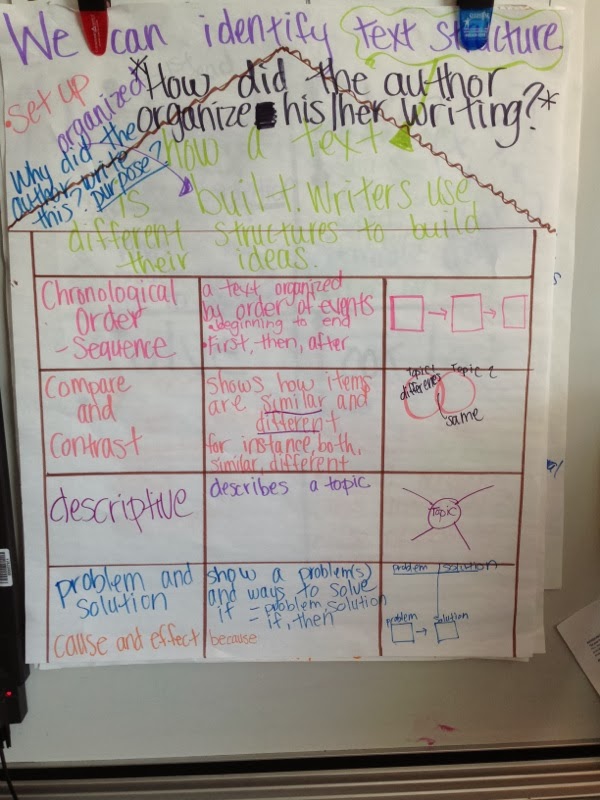 We can identify text structure.
*How did the author
organize his/her writing?*
•set up
organized
Why did the
author write
this? purpose?
how a text
is built. Writers use
different structures to build
their ideas.
Chronological
Order
- Sequence
a text organized
by order of events
•beginning to end
•First, then, after
Compare
and
Contrast
shows how items
are similar and
different
for instance, both,
similar, different
Topic 1
Topic 2
different
same
descriptive
describes a topic
Topic
problem and
solution
show a problem(s)
and ways to solve
if = problem, solution
if, then
problem
solution
problem
solution
cause and effect
because